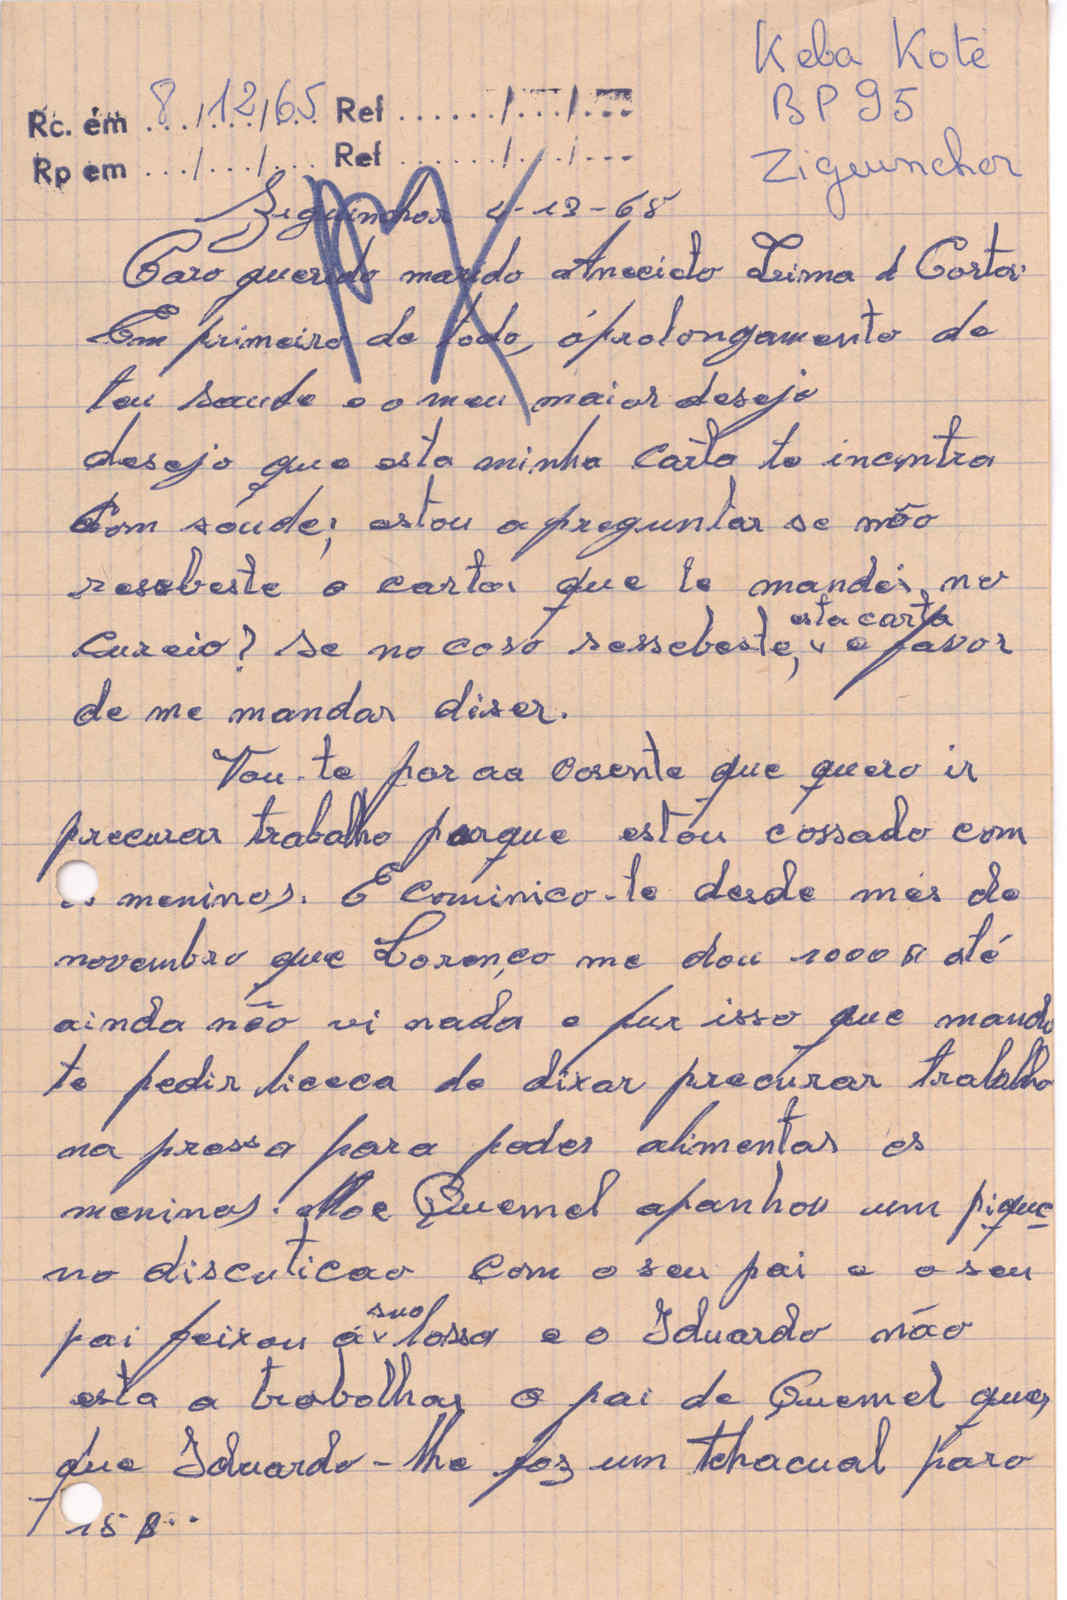 Keba Kote
BP 95
Ziguinchor
Rc. em 8/12/65 Ref ....../.../...
Rp em .../.../... Ref ....../.../...
Ziguinchor 4-12-65
Caro querido marido Anecicto Leima d Costa
Em primeiro de todo, o prolongamento de
teu saude e o meu maior desejo
desejo que esta minha carta te incontra
Com soude; estou a preguntar se não
resebeste a carta que te mandei no
Cureio? Se no caso ressebeste, esta carta e favor
de me mandar diser.
Vou-te por aa cosente que quero ir
precurar trabalho porque estou cossado com
os meninos. E cominico-te desde mes de
novembro que Lorenço me dou 1000 até
ainda não vi nada e pur isso que mando
te pedir liceca de dixar precurar trabalho
na prossa para poder alimentar os
meninos. Mae Quemel apanhou um pique
no discuticao com o seu pai e o seu
pai feixou á sua lossa e o Iduardo não
esta a trabalhar o pai de Quemel quer
que Iduardo-lhe foz um tchacual paro
15